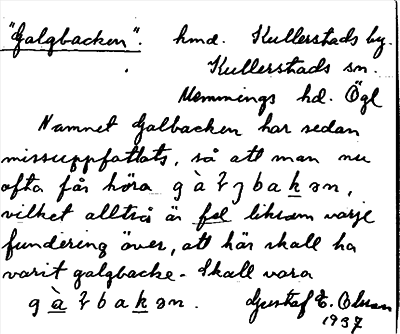 "Galgbacken". hmd. Kullerstads by.
Kullerstads sn.
Memmings hd. Ögl
Namnet Galbacken har sedan
missuppfattats, så att man nu
ofta får höra g à l g b a k ə n,
vilket alltså är fel liksom varje
fundering över, att här skall ha
varit galgbacke. Skall vara
g à l b a k ə n. Gustaf E. Olsson
1937